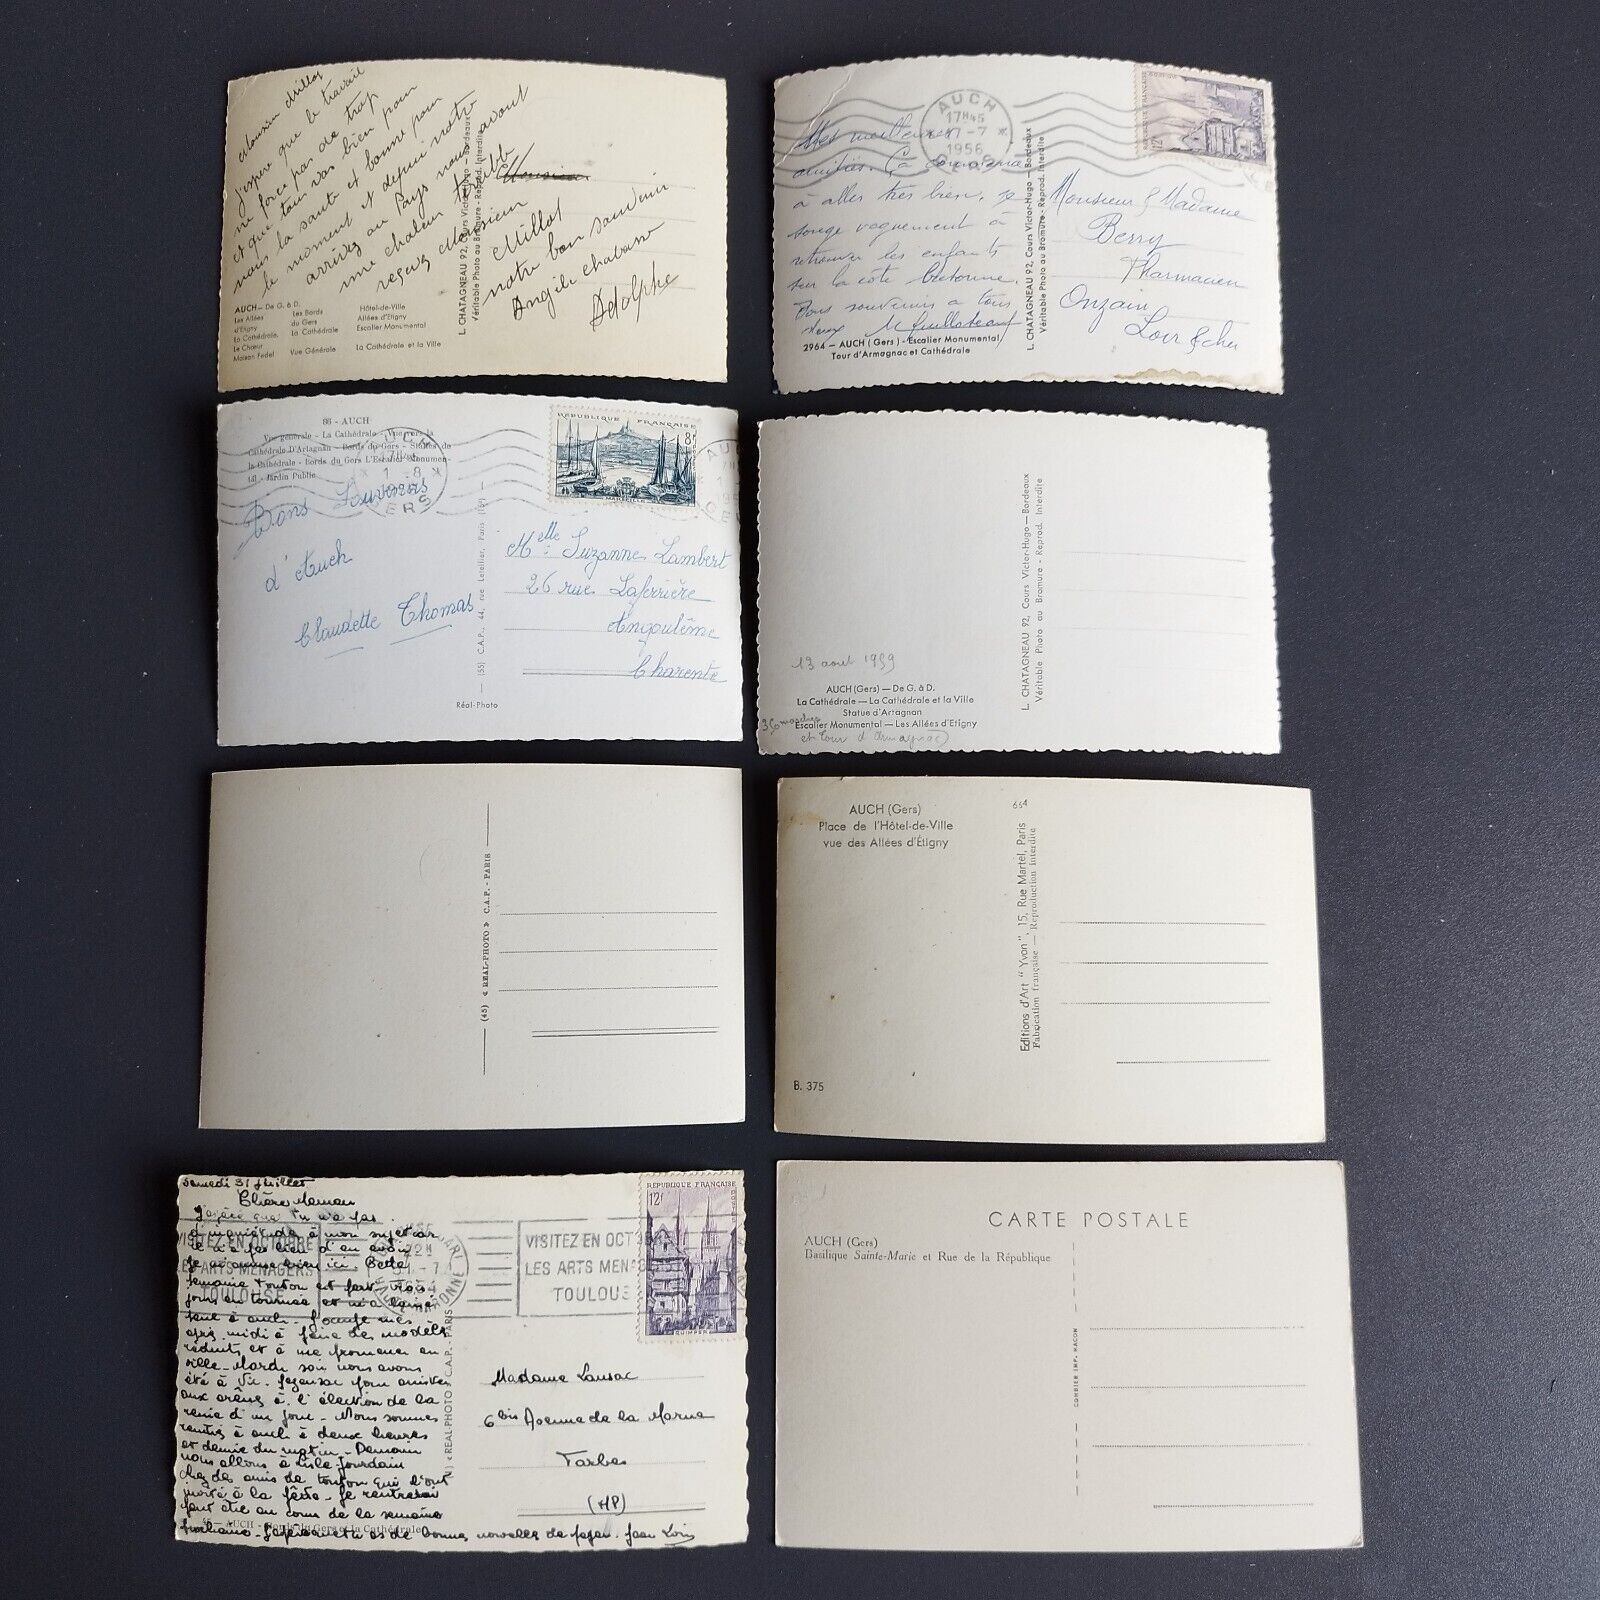 J'espère que le travail
ne force pas de trop
et que tout vas bien pour
nous la santé et bonne pour
le moment et depui notre
arrivez au Pays nous avont
une chaleur terrible
reçevez Monsieur
Millot
notre bon souvenir
Angèle chabane
Adolphe
Monsieur
AUCH — De G. à D.
Les Allées
d'Etigny
La Cathédrale,
Le Chœur
Maison Fedel
Les Bords
du Gers
La Cathédrale
Vue Générale
Hôtel-de-Ville
Allées d'Etigny
Escalier Monumental
La Cathédrale et la Ville
L. CHATAGNEAU 92, Cours Victor-Hugo - Bordeaux
Véritable Photo au Bromure - Reprod. Interdite
AUCH
17H45
-7
1956
GERS
12F
Mes meilleures
amitiés. Ça commence
à aller très bien, je
songe vaguement à
retrouver les enfants
sur la côte bretonne.
Bons souvenirs à tous
deux
2964 - AUCH (Gers) - Escalier Monumental
Tour d'Armagnac et Cathédrale
L. CHATAGNEAU 92, Cours Victor-Hugo - Bordeaux
Véritable Photo au Bromure - Reprod. Interdite
Monsieur & Madame
Berry
Pharmacien
Onzain
Loir & cher
86 - AUCH
Vue générale - La Cathédrale - Vue vers la
Cathédrale D'Artagnan - Bords du Gers - Stalles de
la Cathédrale - Bords du Gers L'Escalier Monumen-
tal - Jardin Public
REPUBLIQUE FRANÇAISE
8F
MARSEILLE
Bons Souvenirs
d'Auch
Claudette Thomas
(55) C.A.P., 44, rue Letellier, Paris (15e)
Réal-Photo
Melle Suzanne Lambert
26 rue Laferrière
Angoulême
Charente
13 aout 1959
AUCH (Gers) — De G. à D.
La Cathédrale — La Cathédrale et la Ville
Statue d'Artagnan
Escalier Monumental — Les Allées d'Etigny
et Tour d'Armagnac)
L. CHATAGNEAU 92, Cours Victor-Hugo - Bordeaux
Véritable Photo au Bromure - Reprod. Interdite
(45) « REAL-PHOTO » C.A.P. - PARIS
AUCH (Gers)
Place de l'Hôtel-de-Ville
vue des Allées d'Étigny
664
Editions d'Art "Yvon", 15, Rue Martel, Paris
Fabrication française — Reproduction interdite
B. 375
Samedi 31 Juillet
Chère Maman
J'espère que tu n'a pas
d'inquiétude à mon sujet car
Belle
semaine Tonton est parti trois
jours en tournée et m'a laissé
seul à Auch. J'occupe mes
après midi à faire des modèles
réduits et à me promener en
ville. Mardi soir nous avons
été à Vic-Fezensac
aux arènes à l'élection de la
reine d'un jour. Nous sommes
rentrés à Auch à deux heures
et demie du matin. Demain
nous allons à Lisle-Jourdain
chez des amis de tonton qui l'ont
invité à la fête. Je rentrerai
peut être au cours de la semaine
prochaine. J'espère que tu as de bonnes nouvelles de papa. Jean Louis
45 — AUCH - Bords du Gers et la Cathédrale
« REAL-PHOTO » C.A.P. - PARIS
VISITEZ EN OCTOBRE
LES ARTS MENAGERS
TOULOUSE
VISITEZ EN OCT
LES ARTS MENA
TOULOUS
REPUBLIQUE FRANÇAISE
12F
QUIMPER
Madame Lansac
6bis Avenue de la Marne
Tarbes
(HP)
CARTE POSTALE
AUCH (Gers)
Basilique Sainte-Marie et Rue de la République
COMBIER IMP. MACON